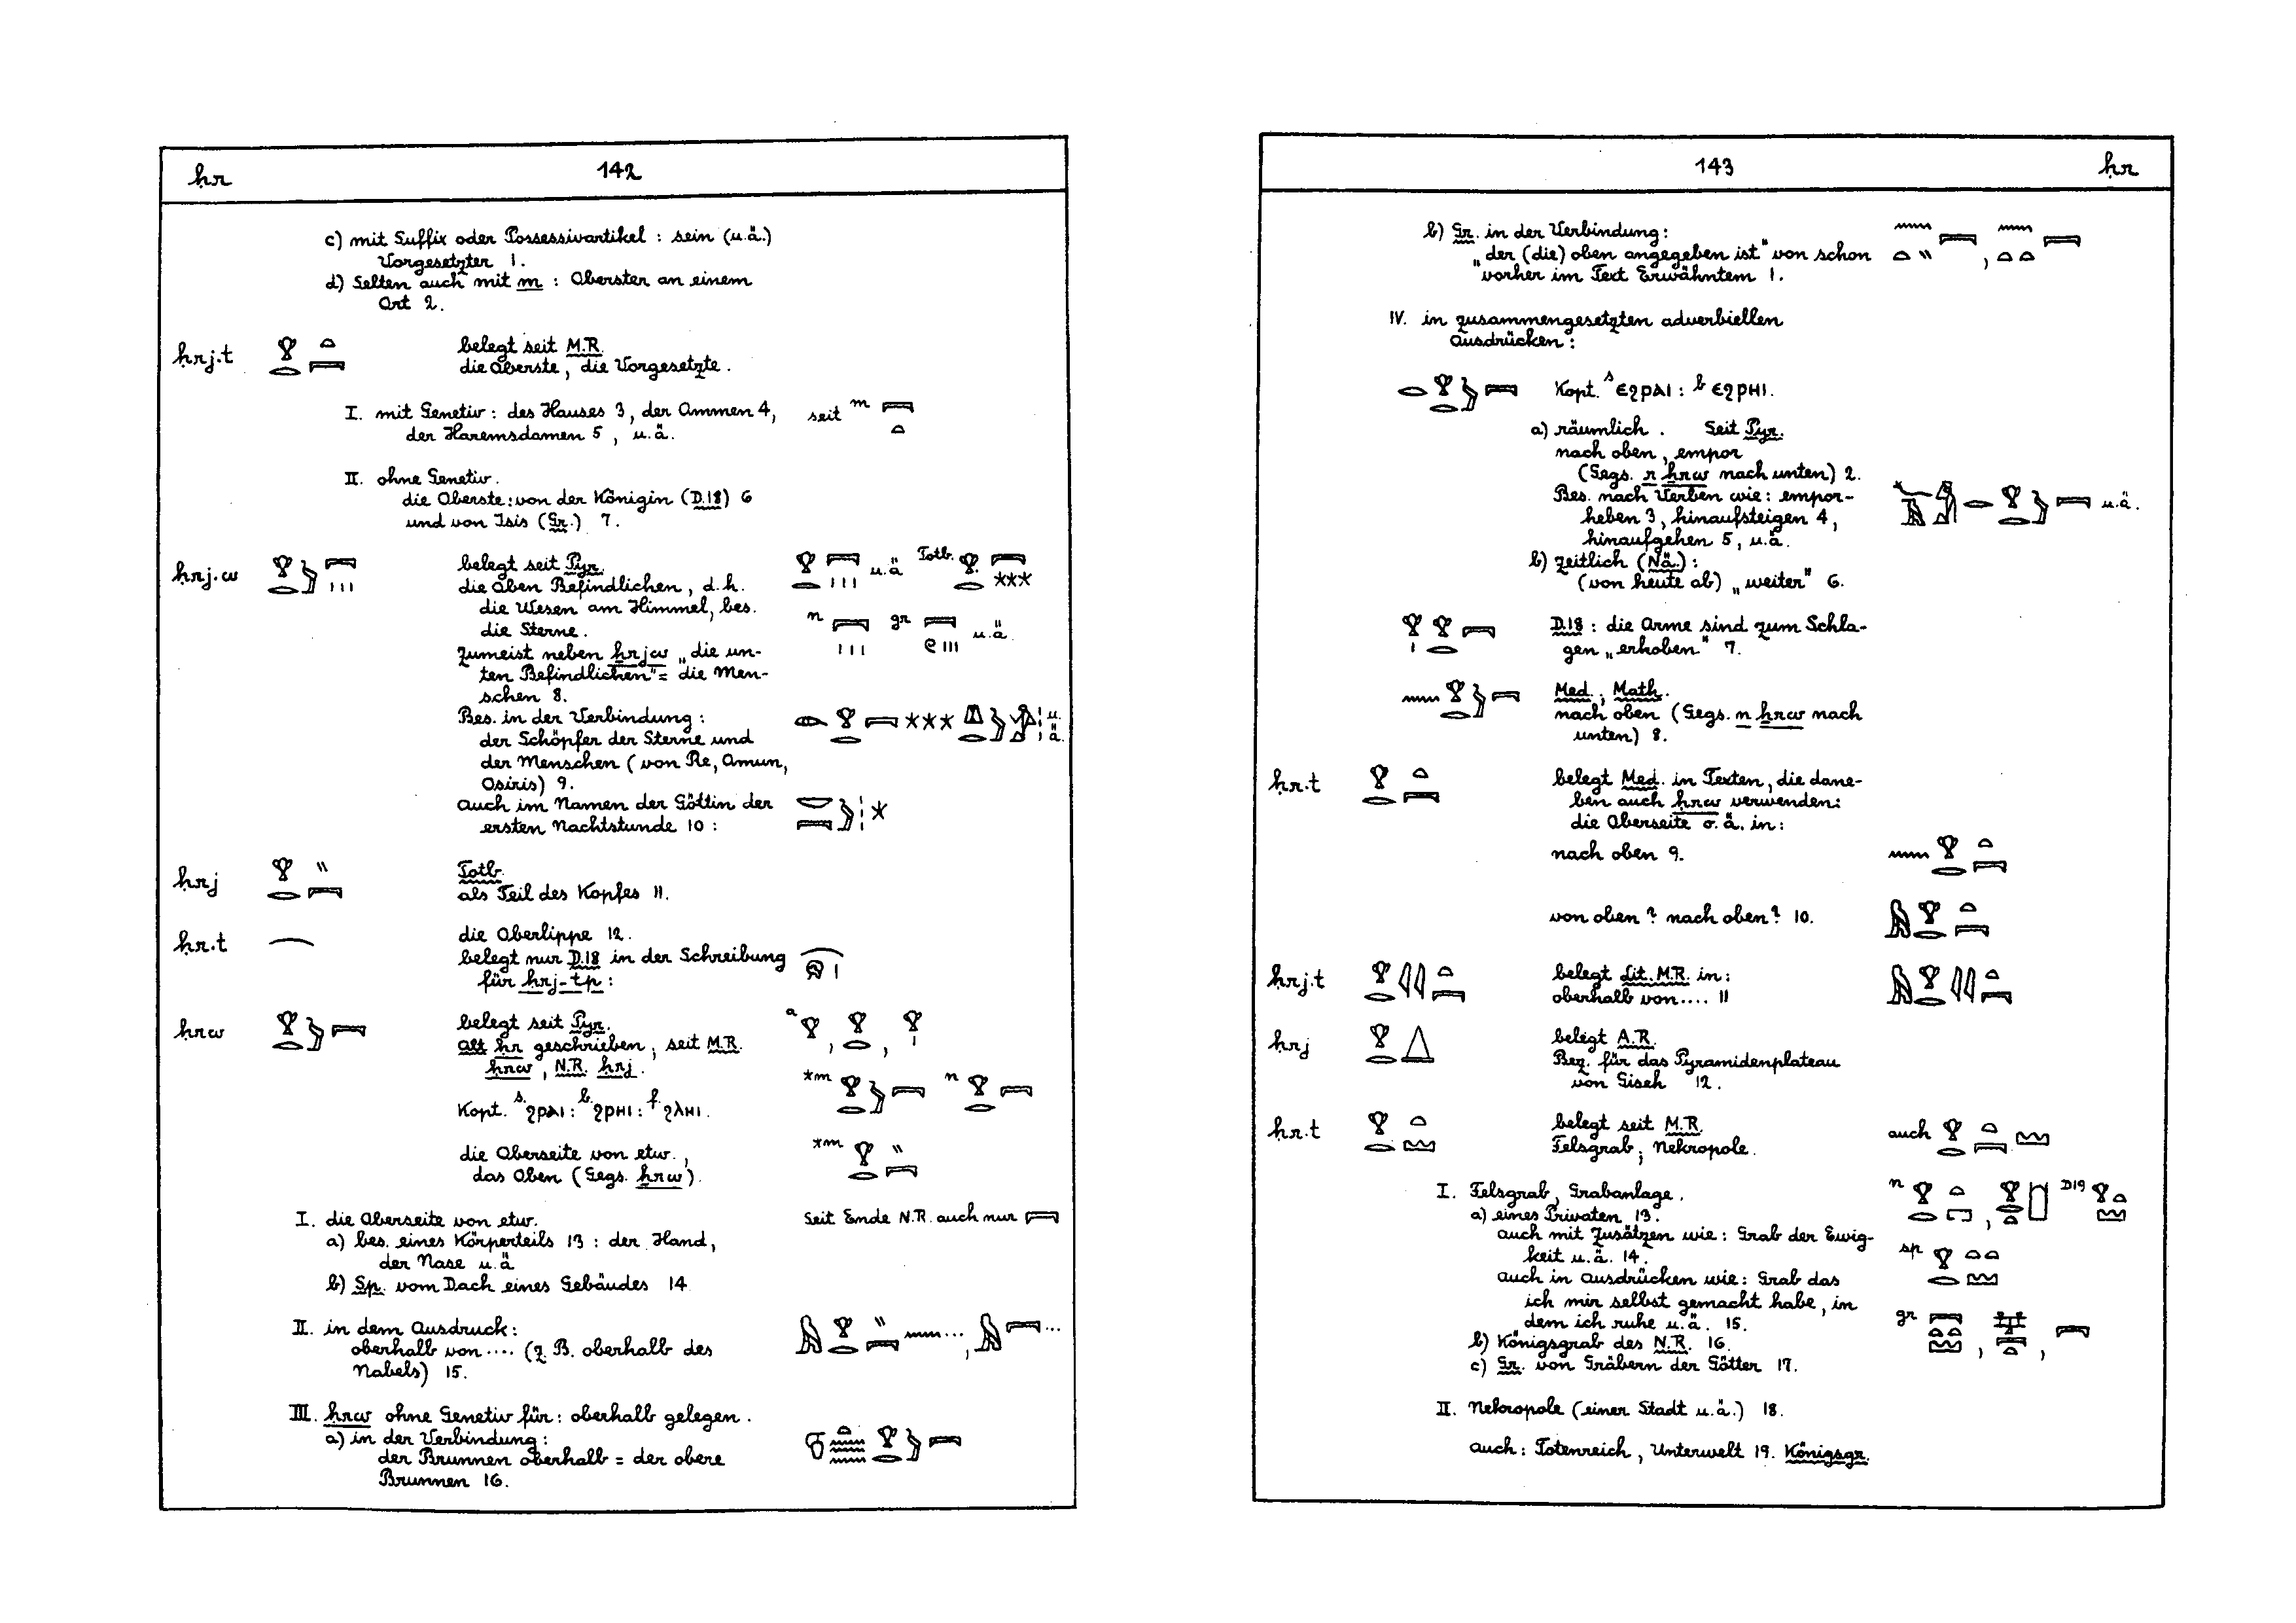 ḥr 142
c) mit Suffix oder Possessivartikel : sein (u.ä.)
Vorgesetzter 1.
d) Selten auch mit m : Oberster an einem
Ort 2.
ḥrj.t belegt seit M.R.
die Oberste, die Vorgesetzte.
I. mit Genetiv : des Hauses 3, der Ammen 4, seit m
der Haremsdamen 5, u.ä.
II. ohne Genetiv.
die Oberste : von der Königin (D.18) 6
und von Isis (Gr.) 7.
ḥrj.w belegt seit Pyr. u.ä Totb.
die oben Befindlichen, d.h.
die Wesen am Himmel, bes.
die Sterne. n gr u.ä.
zumeist neben ẖrjw „die un-
ten Befindlichen" = die Men-
schen 8.
Bes. in der Verbindung : u.
der Schöpfer der Sterne und ä.
der Menschen (von Re, Amun,
Osiris) 9.
auch im Namen der Göttin der
ersten Nachtstunde 10 :
ḥrj Totb.
als Teil des Kopfes 11.
ḥr.t die Oberlippe 12.
belegt nur D.18 in der Schreibung
für ḥrj-tp :
ḥrw belegt seit Pyr. a
alt ḥr geschrieben, seit M.R.
ḥrw, N.R. ḥrj. *m n
Kopt. s. ϩⲣⲁⲓ : b. ϩⲣⲏⲓ : f. ϩⲗⲏⲓ.
die Oberseite von etw., *m
das Oben (Gegs. ẖrw).
I. die Oberseite von etw. Seit Ende N.R. auch nur
a) bes. eines Körperteils 13 : der Hand,
der Nase u.ä
b) Sp. vom Dach eines Gebäudes 14
II. in dem Ausdruck : ... , ...
oberhalb von .... (z.B. oberhalb des
Nabels) 15.
III. ḥrw ohne Genetiv für : oberhalb gelegen.
a) in der Verbindung :
der Brunnen oberhalb = der obere
Brunnen 16.
143 ḥr
b) Gr. in der Verbindung :
„der (die) oben angegeben ist" von schon
vorher im Text Erwähntem 1.
IV. in zusammengesetzten adverbiellen
Ausdrücken :
Kopt. s ⲉϩⲣⲁⲓ : b ⲉϩⲣⲏⲓ.
a) räumlich. Seit Pyr.
nach oben, empor
(Gegs. r ẖrw nach unten) 2.
Bes. nach Verben wie : empor- u.ä.
heben 3, hinaufsteigen 4,
hinaufgehen 5, u.ä.
b) zeitlich (Nä.) :
(von heute ab) „weiter" 6.
D.18 : die Arme sind zum Schla-
gen „erhoben" 7.
Med., Math.
nach oben (Gegs. n ẖrw nach
unten) 8.
ḥr.t belegt Med. in Texten, die dane-
ben auch ḥrw verwenden:
die Oberseite o.ä. in :
nach oben 9.
von oben ? nach oben ? 10.
ḥrj.t belegt Lit. M.R. in :
oberhalb von .... 11
ḥrj belegt A.R.
Bez. für das Pyramidenplateau
von Giseh 12.
ḥr.t belegt seit M.R. auch
Felsgrab; Nekropole.
I. Felsgrab, Grabanlage. n D19
a) eines Privaten 13.
auch mit Zusätzen wie : Grab der Ewig-
keit u.ä. 14. sp
auch in Ausdrücken wie : Grab das
ich mir selbst gemacht habe, in
dem ich ruhe u.ä. 15. gr
b) Königsgrab des N.R. 16.
c) Gr. von Gräbern der Götter 17.
II. Nekropole (einer Stadt u.ä.) 18.
auch : Totenreich, Unterwelt 19. Königsgr.